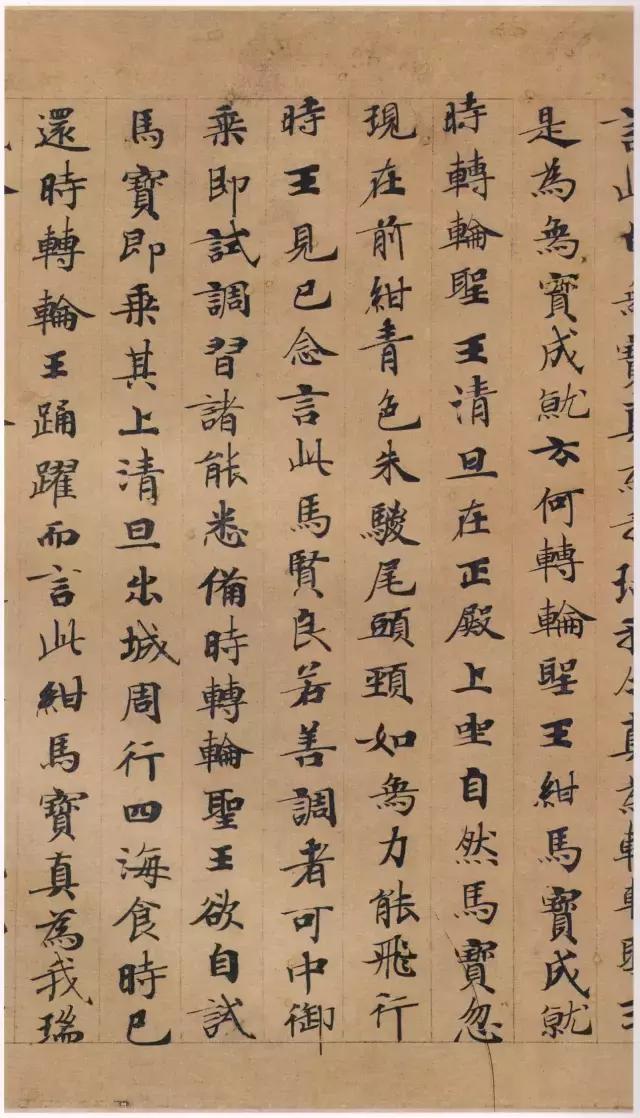 言此寶真今真為轉輪聖王
是為象寶成就云何轉輪聖王紺馬寶成就
時轉輪聖王清旦在正殿上坐自然馬寶忽
現在前紺青色朱騣尾頭頸如象力能飛行
時王見已念言此馬賢良若善調者可中御
乘即試調習諸能悉備時轉輪聖王欲自試
馬寶即乘其上清旦出城周行四海食時已
還時轉輪王踊躍而言此紺馬寶真為我瑞